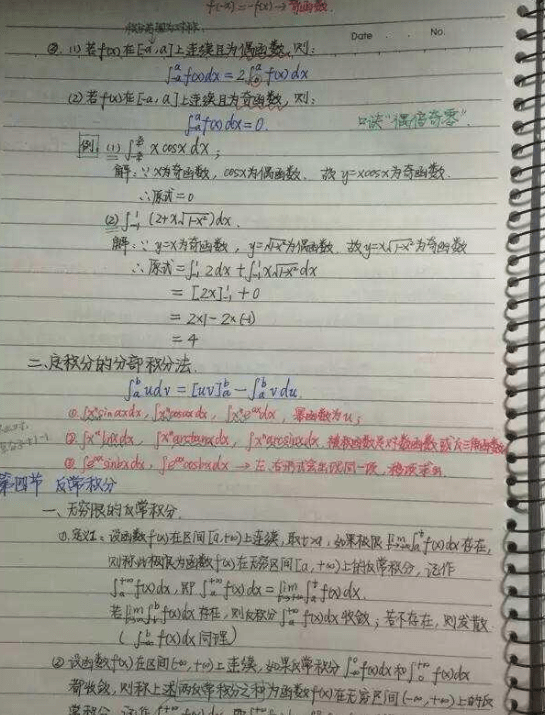 f(-x)=-f(x)→奇函数.
Date . . No.
②. (1) 若f(x)在[-a,a]上连续且为偶函数,则:
∫₋ₐᵃ f(x)dx = 2∫₀ᵃ f(x)dx
(2) 若f(x)在[-a,a]上连续且为奇函数,则:
∫₋ₐᵃ f(x)dx = 0. 口诀“偶倍奇零”.
例: (1) ∫ x cosx dx ;
解: ∵ x为奇函数, cosx为偶函数. 故 y=xcosx为奇函数.
∴原式=0
(2) ∫₋₁¹ (2+x√1-x²)dx.
解: ∵ y=x为奇函数, y=√1-x²为偶函数. 故y=x√1-x²为奇函数
∴ 原式=∫₋₁¹ 2dx + ∫₋₁¹ x√1-x² dx
= [2x]₋₁¹ + 0
= 2×1 - 2×(-1)
= 4
二、定积分的分部积分法.
∫ₐᵇ udv = [uv]ₐᵇ - ∫ₐᵇ vdu.
①. ∫xⁿsinaxdx, ∫xⁿcosaxdx, ∫xⁿeᵃˣdx, 幂函数为u;
②. ∫xⁿlnxdx, ∫xⁿarctanxdx, ∫xⁿarcsinxdx, 函数及对数函数或反三角函数
③. ∫eᵃˣsinbxdx, ∫eᵃˣcosbxdx → 左、右形式会出现同一项, 移项求出.
第四节 反常积分
一、无穷限的反常积分
①. 定义1: 设函数f(x)在区间[a,+∞)上连续, 取t>a, 如果极限 lim ∫ₐᵗ f(x)dx存在,
则称此极限为函数f(x)在无穷区间[a,+∞)上的反常积分, 记作
∫ₐ⁺∞ f(x)dx, 即 ∫ₐ⁺∞ f(x)dx = lim ∫ₐᵗ f(x)dx.
若 lim ∫ₐᵗ f(x)dx 存在, 则反积分 ∫ₐ⁺∞ f(x)dx收敛; 若不存在, 则发散
( ∫₋∞ᵇ f(x)dx 同理)
② 设函数f(x)在区间(-∞,+∞)上连续, 如果反常积分 ∫₋∞⁰ f(x)dx和∫₀⁺∞ f(x)dx
都收敛, 则称上述两反常积分之和为函数f(x)在无穷区间(-∞,+∞)上的反
常积分, 记作